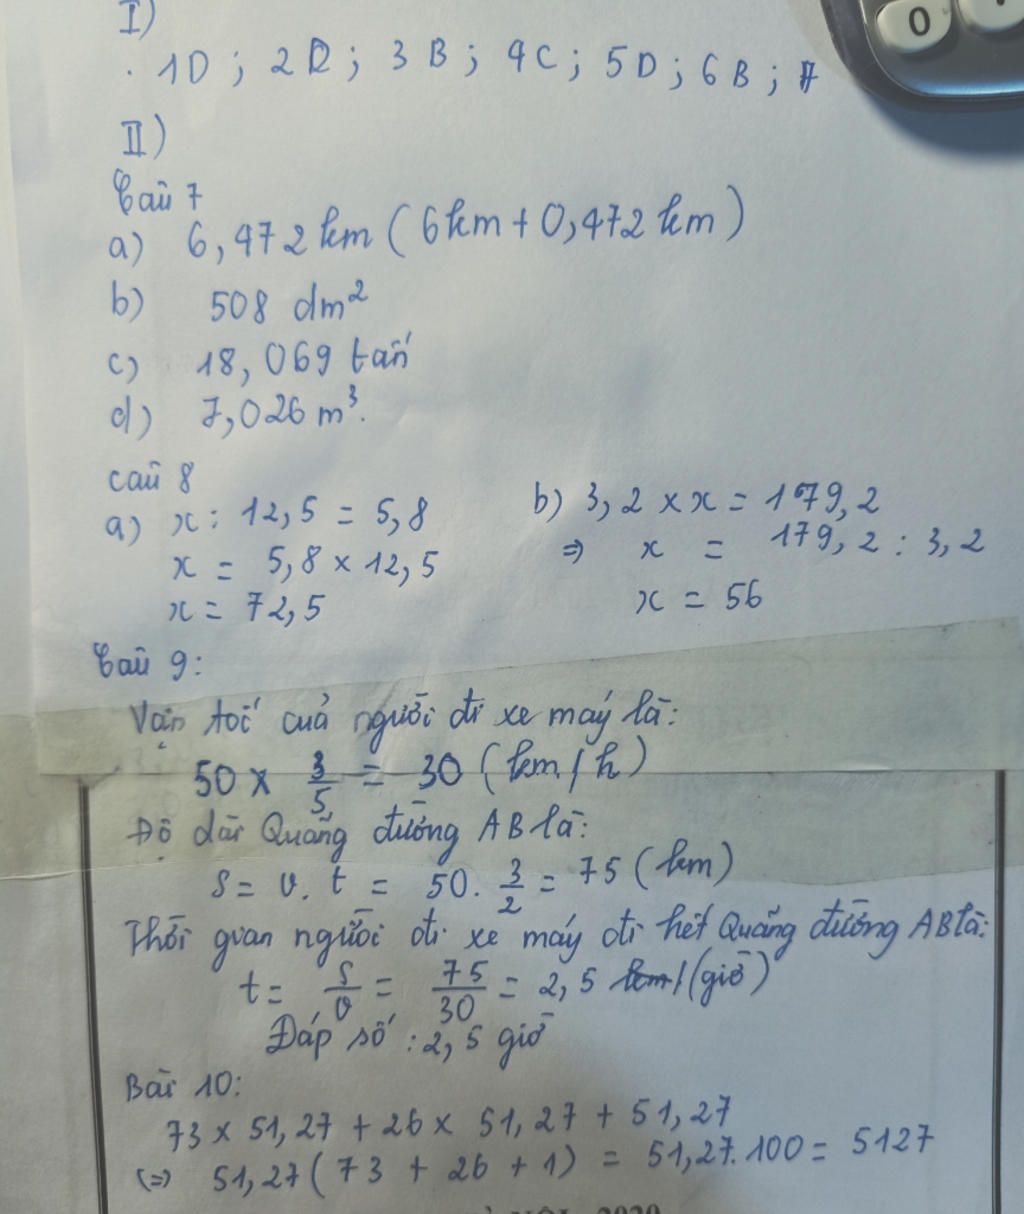 I)
1D ; 2D ; 3B ; 4C ; 5D ; 6B ;
II)
Câu 7
a) 6,472 km ( 6km + 0,472 km )
b) 508 dm²
c) 18,069 tấn
d) 7,026 m³.
câu 8
a) x : 12,5 = 5,8
x = 5,8 × 12,5
x = 72,5
b) 3,2 × x = 179,2
⇒ x = 179,2 : 3,2
x = 56
Câu 9:
Vận tốc của người đi xe máy là:
50 × 3/5 = 30 (km/h)
Độ dài Quãng đường AB là:
S = v. t = 50. 3/2 = 75 (km)
Thời gian người đi xe máy đi hết Quãng đường AB là:
t = S/v = 75/30 = 2,5 (giờ)
Đáp số : 2,5 giờ
Bài 10:
73 × 51,27 + 26 × 51,27 + 51,27
(=) 51,27 ( 73 + 26 + 1 ) = 51,27.100 = 5127